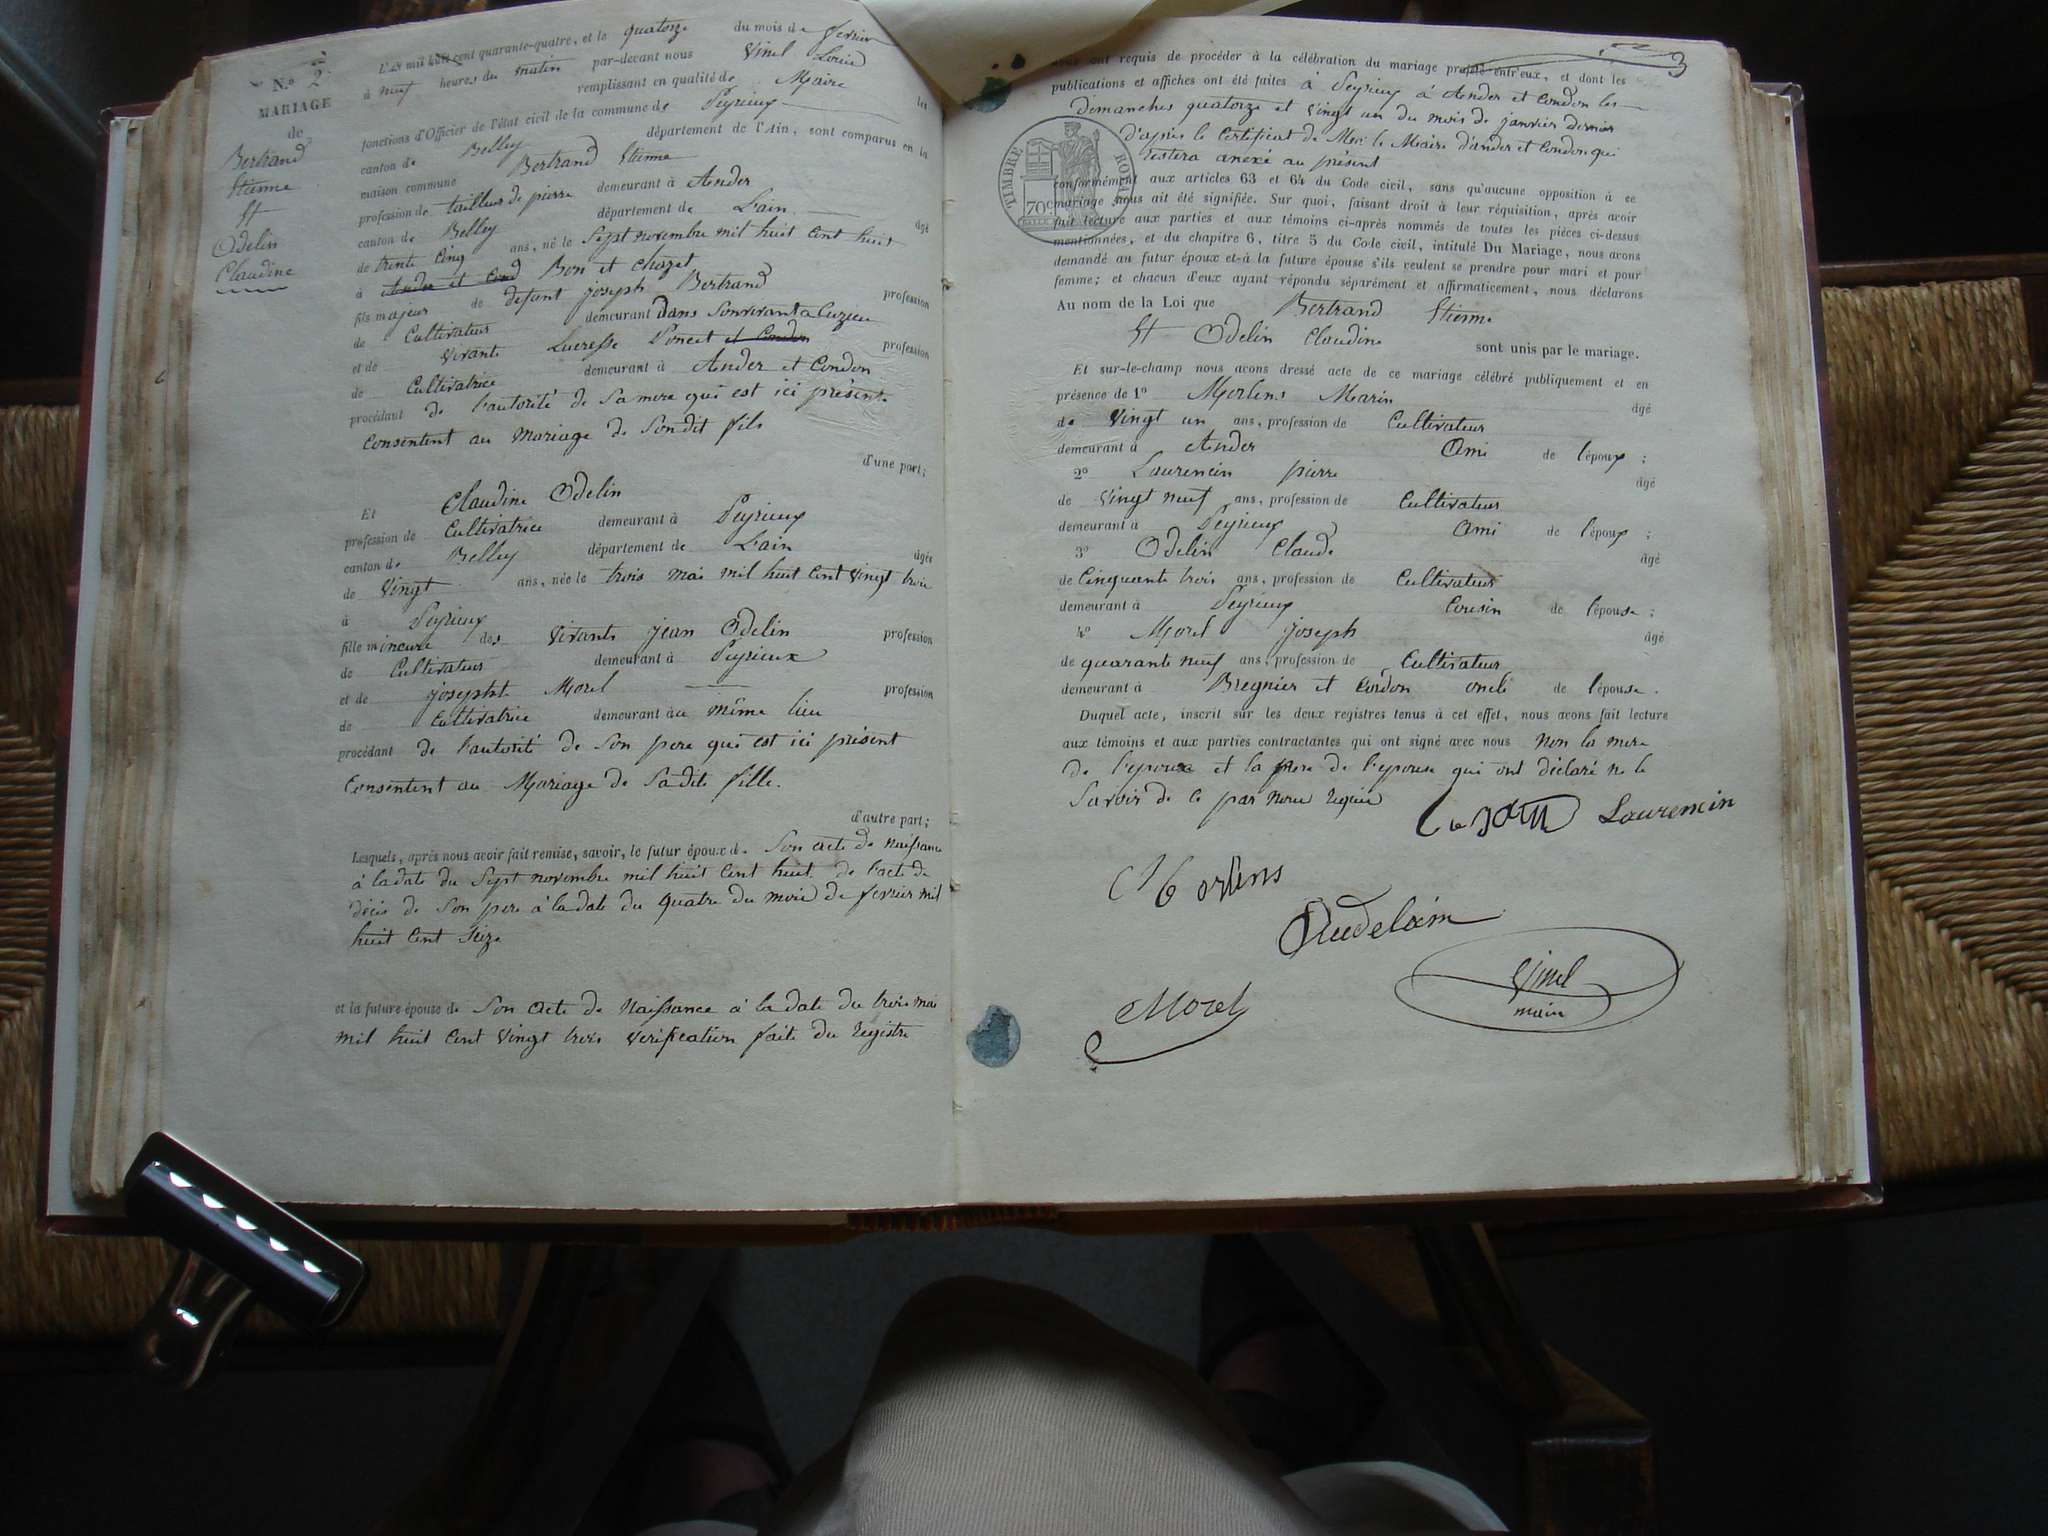 N.º 2
MARIAGE
de
Bertrand
Etienne
Et
Odelin
Claudine
L'an mil huit cent quarante-quatre, et le quatorze du mois de fevrier
à neuf heures du matin par-devant nous Vinel Louis
remplissant en qualité de Maire les
fonctions d'Officier de l'état civil de la commune de Peyrieux
canton de Belley département de l'Ain, sont comparus en la
maison commune Bertrand Etienne
profession de tailleur de pierre demeurant à Ander
canton de Belley département de L'ain âgé
de trente cinq ans, né le Sept novembre mil huit cent huit
à Ander et Cond Bon et Chazet
fils majeur de defunt joseph Bertrand profession
de Cultivateur demeurant Dans Sonvivant a Cuzieu
et de vivante Lucresse Poncet et Condon profession
de Cultivatrice demeurant à Ander et Condon
procédant de l'autorité de Sa mere qui est ici présent
Consentent au Mariage de Sondit fils
d'une part;
Et Claudine Odelin
profession de Cultivatrice demeurant à Peyrieux
canton de Belley département de L'ain âgée
de Vingt ans, née le trois mai mil huit Cent Vingt trois
à Peyrieux
fille mineure des vivants jean Odelin profession
de Cultivateur demeurant à Peyrieux
et de josephte Morel profession
de Cultivatrice demeurant au même lieu
procédant de l'autorité de Son pere qui est ici présent
Consentent au Mariage de Sadite fille.
d'autre part;
Lesquels, après nous avoir fait remise, savoir, le futur époux de Son acte de Naissance
à la date du Sept novembre mil huit Cent huit de l'acte de
décés de Son pere à la date du quatre du mois de fevrier mil
huit Cent Seize
et la future épouse de Son acte de Naissance à la date du trois mai
mil huit Cent Vingt trois verification faite du registre
3
nous ont requis de procéder à la célébration du mariage projeté entr'eux, et dont les
publications et affiches ont été faites à Peyrieux à Ander et Condon les
demanches quatorze et vingt un du mois de janvier dernier
d'après le Certificat de Mr le Maire d'ander et Condon qui
restera anexé au présent
TIMBRE ROYAL
70c
conformément aux articles 63 et 64 du Code civil, sans qu'aucune opposition à ce
mariage nous ait été signifiée. Sur quoi, faisant droit à leur réquisition, après avoir
fait lecture aux parties et aux témoins ci-après nommés de toutes les pièces ci-dessus
mentionnées, et du chapitre 6, titre 5 du Code civil, intitulé Du Mariage, nous avons
demandé au futur époux et à la future épouse s'ils veulent se prendre pour mari et pour
femme; et chacun d'eux ayant répondu séparément et affirmativement, nous déclarons
Au nom de la Loi que Bertrand Etienne
Et Odelin Claudine sont unis par le mariage.
Et sur-le-champ nous avons dressé acte de ce mariage célébré publiquement et en
présence de 1º Morlens Marin âgé
de Vingt un ans, profession de Cultivateur
demeurant à Ander Ami de l'époux;
2º Laurencin pierre âgé
de Vingt neuf ans, profession de Cultivateur
demeurant à Peyrieux Ami de l'époux;
3º Odelin Claude âgé
de Cinquante trois ans, profession de Cultivateur
demeurant à Peyrieux Cousin de l'épouse;
4º Morel joseph âgé
de quarante neuf ans, profession de Cultivateur
demeurant à Bregnier et Cordon oncle de l'épouse.
Duquel acte, inscrit sur les deux registres tenus à cet effet, nous avons fait lecture
aux témoins et aux parties contractantes qui ont signé avec nous Non la mere
de l'epoux et la mere de l'epouse qui ont déclaré ne le
Savoir de ce par nous requis
Laurencin
Morlens
Audelain
Vinel
maire
Morel